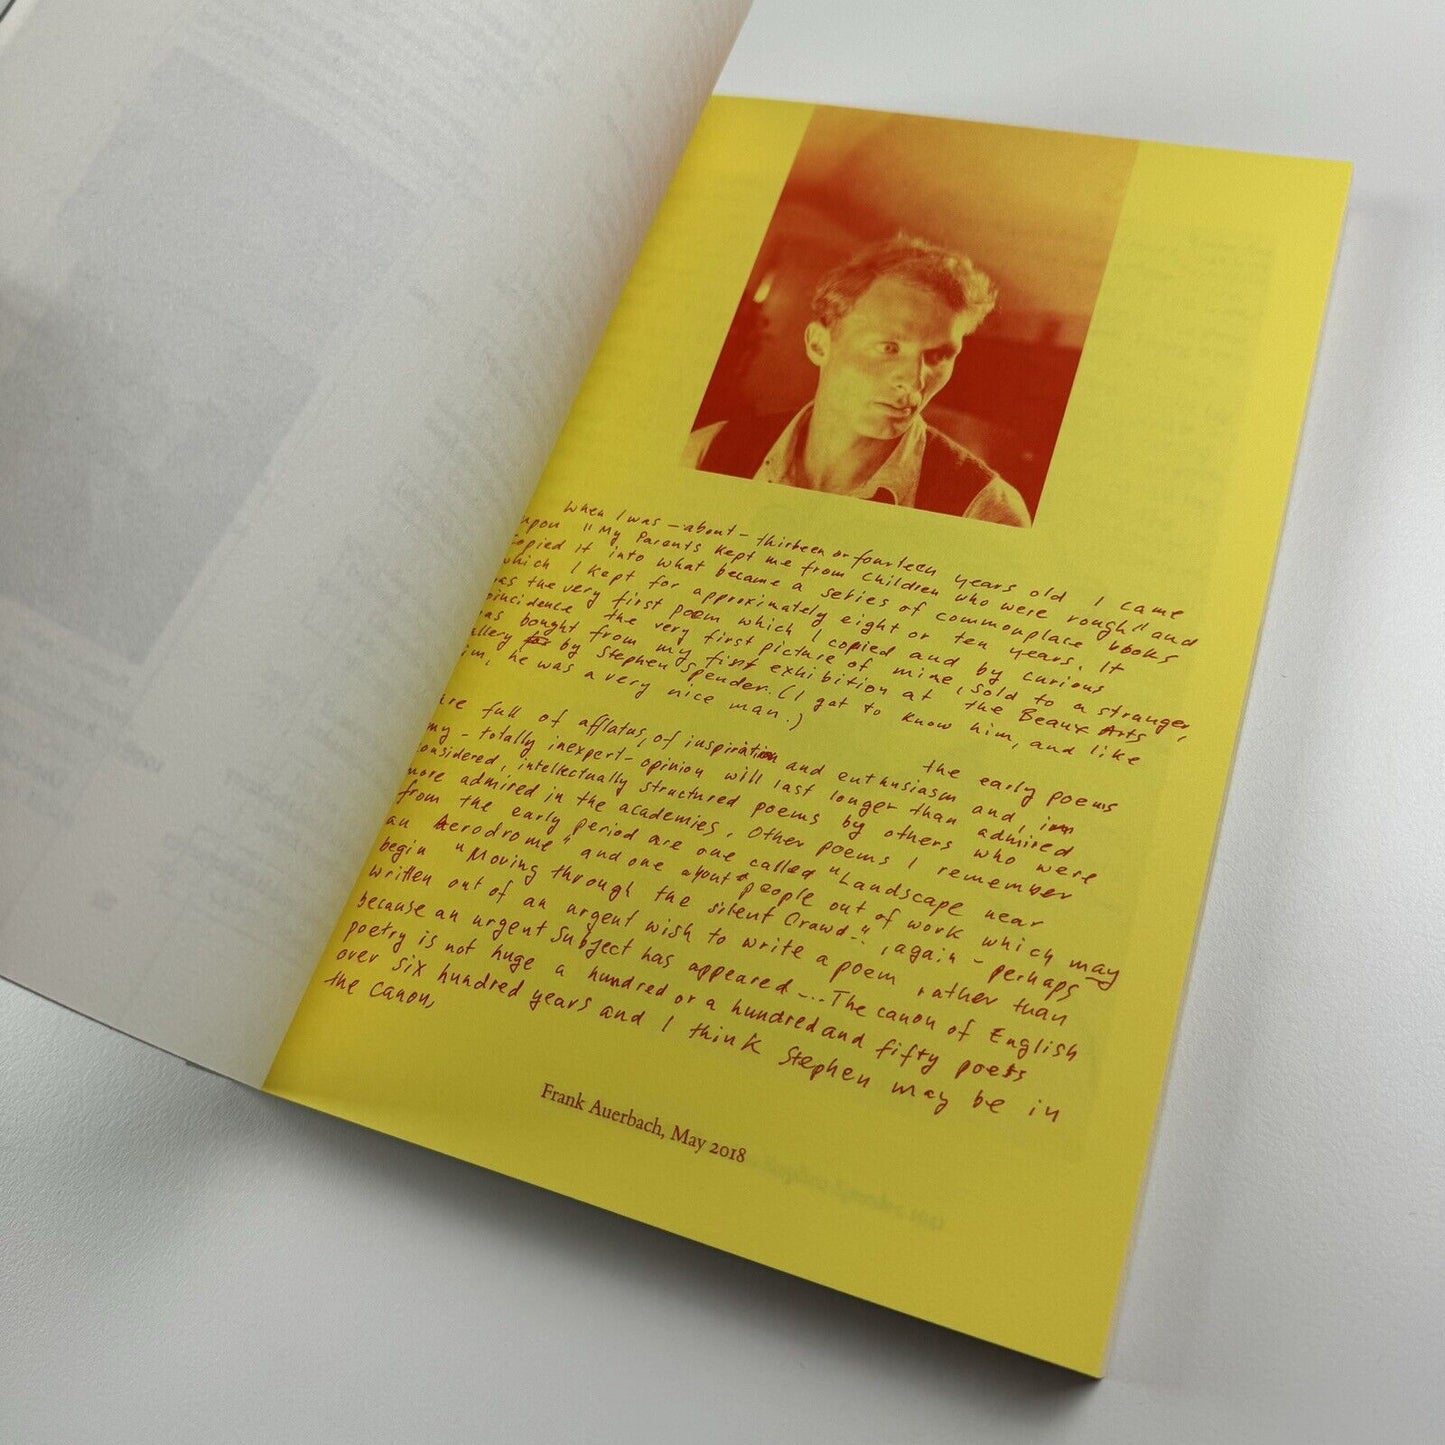 When I was – about – thirteen or fourteen years old I came
upon "My Parents kept me from Children who were rough" and
copied it into what became a series of commonplace books
which I kept for approximately eight or ten years. It
was the very first poem which I copied and by curious
coincidence the very first picture of mine, sold to a stranger,
was bought from my first exhibition at the Beaux Arts
Gallery by Stephen Spender. (I got to know him, and like
him, he was a very nice man.)
the early poems
are full of afflatus, of inspiration and enthusiasm and, in
my – totally inexpert – opinion will last longer than admired
considered, intellectually structured poems by others who were
more admired in the academies. Other poems I remember
from the early period are one called "Landscape near
an Aerodrome" and one about people out of work which may
begin "Moving through the silent Crowd–", again – perhaps
written out of an urgent wish to write a poem rather than
because an urgent subject has appeared.... The canon of English
poetry is not huge a hundred or a hundred and fifty poets
over six hundred years and I think Stephen may be in
the canon,
Frank Auerbach, May 2018